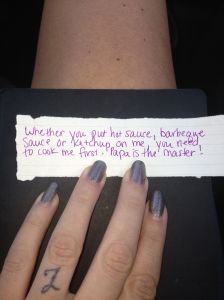 Whether you put hot sauce, barbeque
sauce or Katchup on me, you need
to cook me first. Papa is the master!